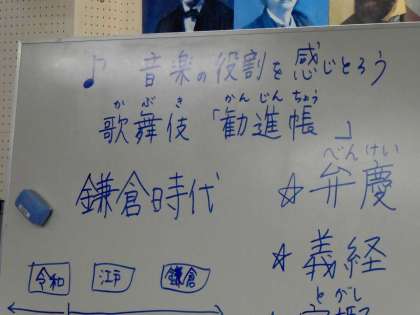 ♪ 音楽の役割を感じとろう
かぶき かんじんちょう
歌舞伎「勧進帳」
鎌倉時代
べんけい
☆弁慶
☆義経
令和 江戸 鎌倉
とがし